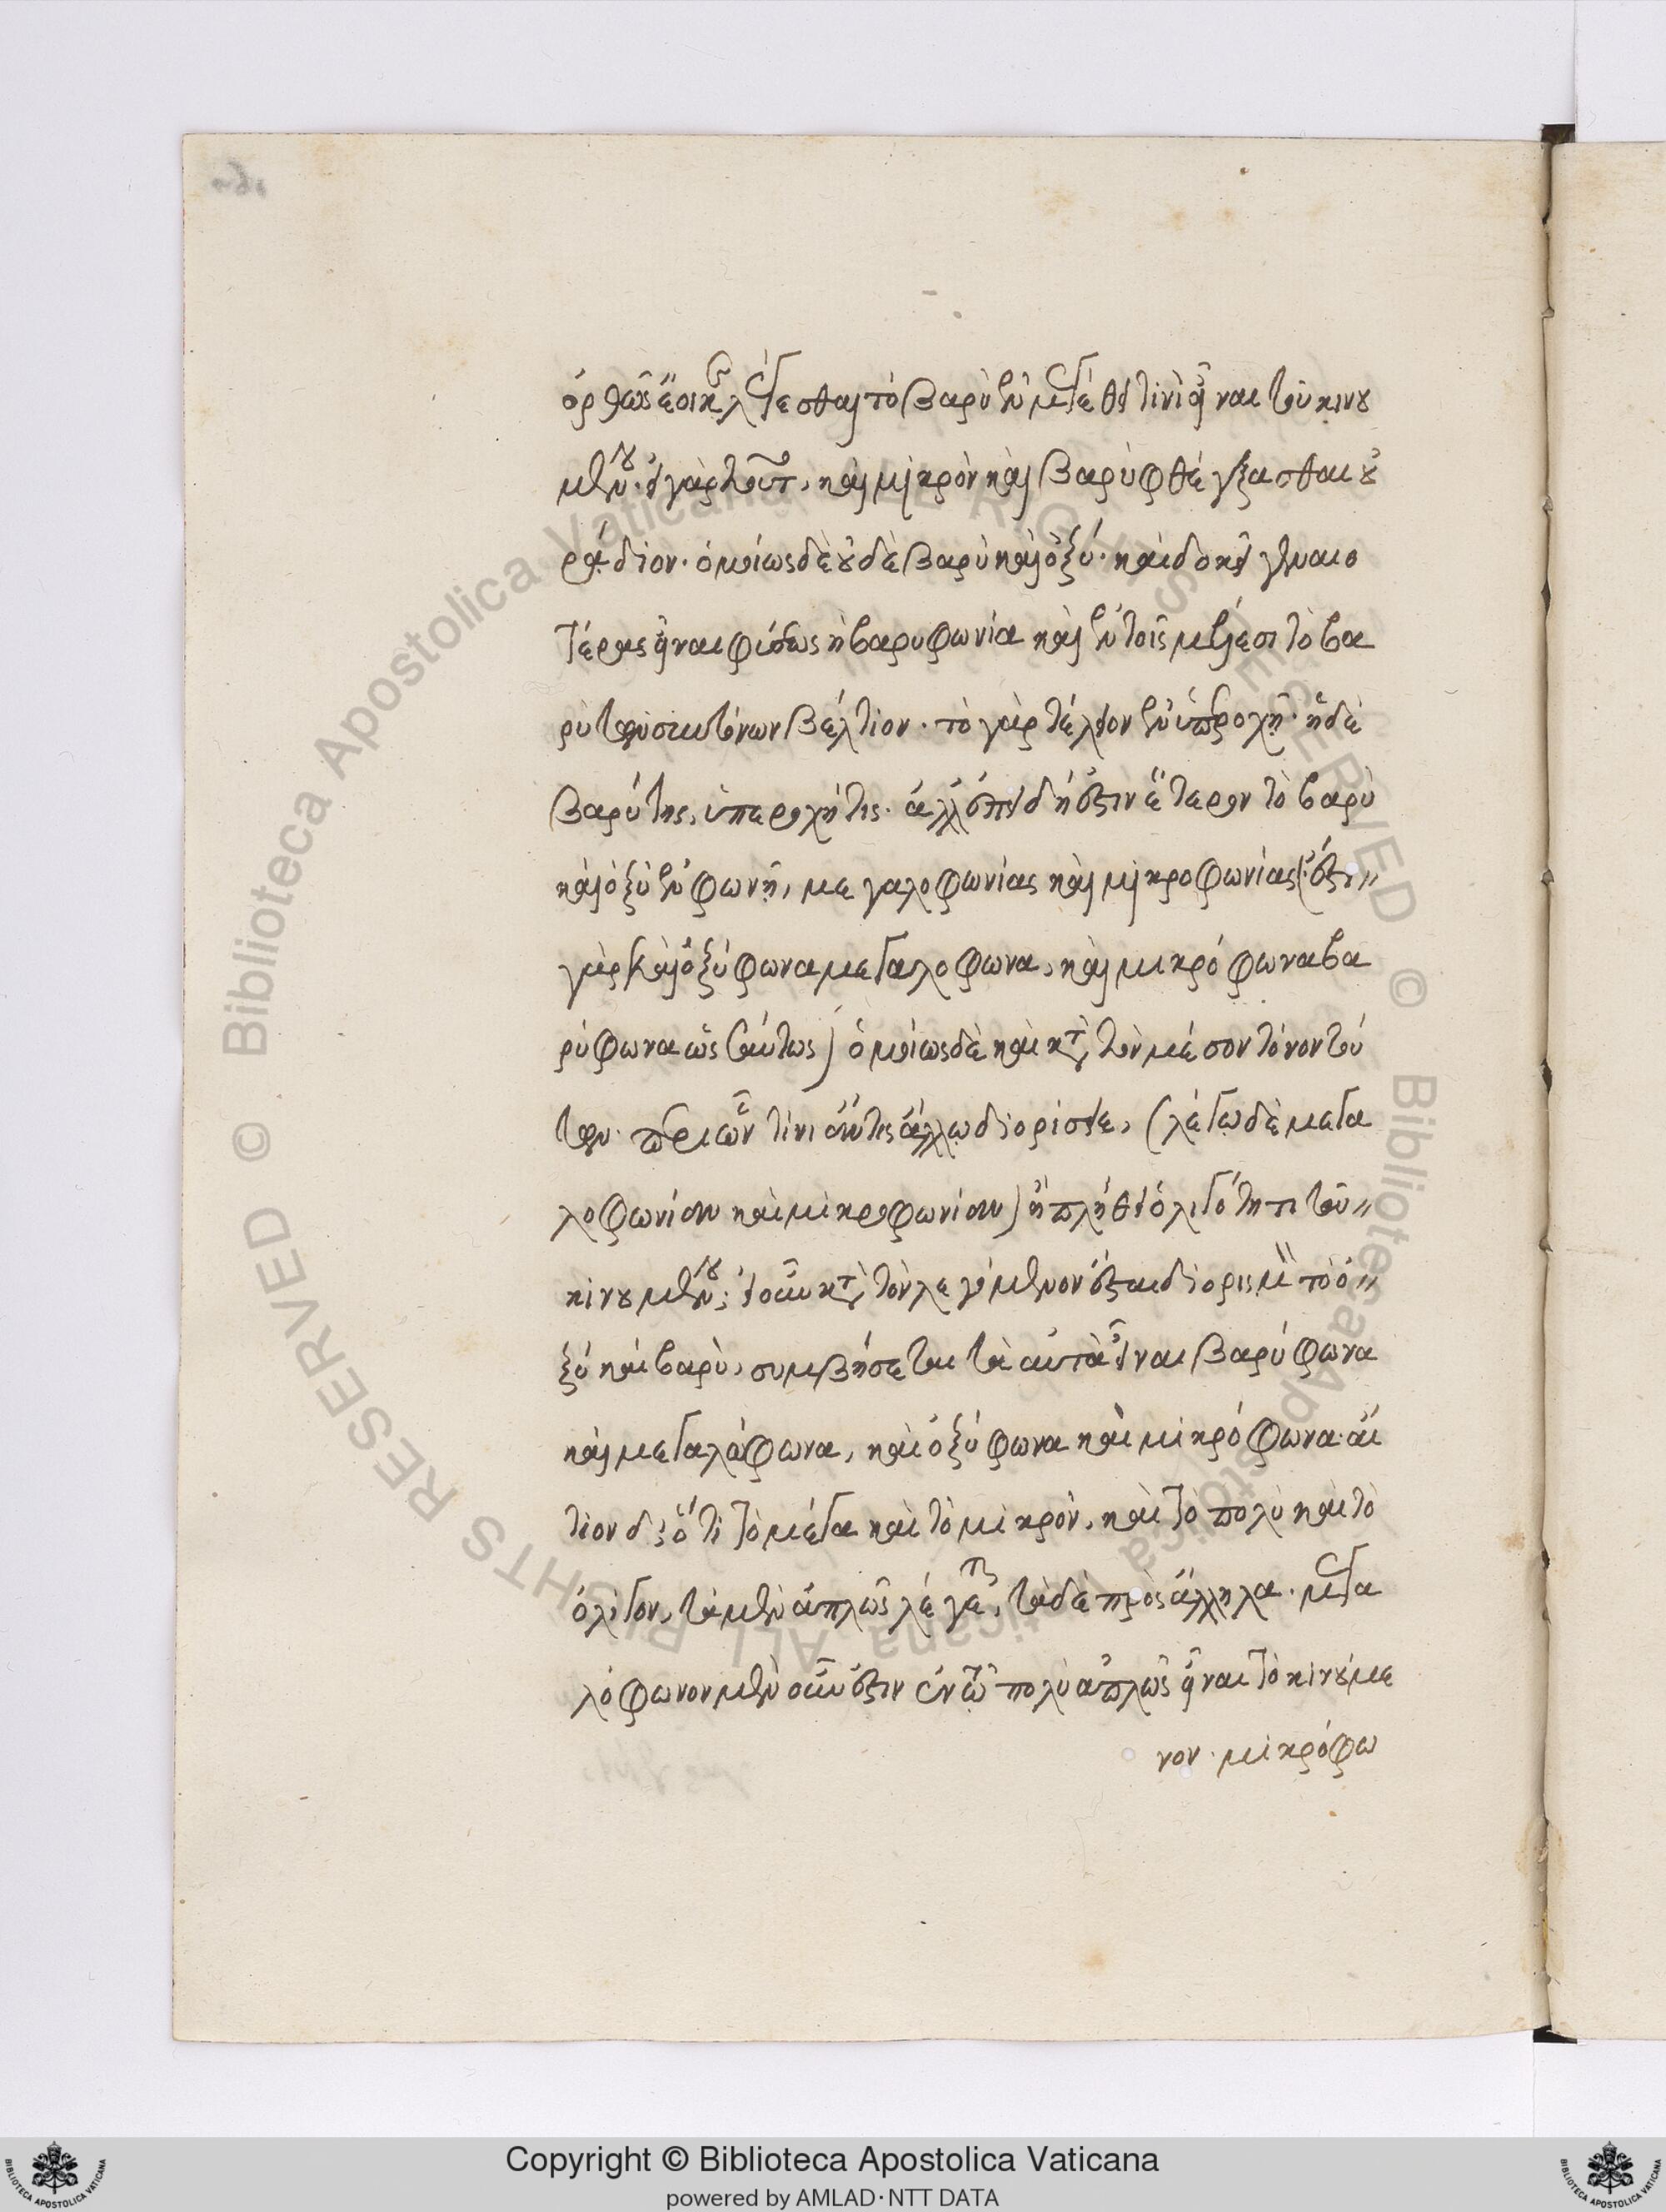 ὀρθῶς ἔοικε λέγεσθαι τὸ βαρὺ ἐν μεγέθει τινὶ εἶναι τοῦ κινου
μένου· εἰ γὰρ τοῦτο, καὶ μικρὸν καὶ βαρὺ φθέγξασθαι οὐ
ῥᾴδιον· ὁμοίως δὲ οὐδὲ βαρὺ καὶ ὀξύ· καὶ δοκεῖ γενναιο
τέρας εἶναι φύσεως ἡ βαρυφωνία καὶ ἐν τοῖς μέλεσι τὸ βα
ρὺ τῶν συντόνων βέλτιον· τὸ γὰρ τέλειον ἐν ὑπεροχῇ· ἡ δὲ
βαρύτης, ὑπεροχή τις· ἀλλ' ἐπειδή ἐστιν ἕτερον τὸ βαρὺ
καὶ ὀξὺ ἐν φωνῇ, μεγαλοφωνίας καὶ μικροφωνίας (ἔστι
γὰρ καὶ ὀξύφωνα μεγαλόφωνα, καὶ μικρόφωνα βα
ρύφωνα ὡσαύτως) ὁμοίως δὲ καὶ κατὰ τὸν μέσον τόνον τού
των· περὶ ὧν τίνι ἄν τις ἄλλῳ διορίσειε, (λέγω δὲ μεγα
λοφωνίαν καὶ μικροφωνίαν) ἢ πλήθει ὀλιγότητι τοῦ
κινουμένου; εἰ οὖν κατὰ τὸν λεγόμενον ἔσται διορισμὸν τὸ ὀ
ξὺ καὶ βαρὺ, συμβήσεται τὰ αὐτὰ εἶναι βαρύφωνα
καὶ μεγαλόφωνα, καὶ ὀξύφωνα καὶ μικρόφωνα· αἴ
τιον δ' ὅτι τὸ μέγα καὶ τὸ μικρὸν, καὶ τὸ πολὺ καὶ τὸ
ὀλίγον, τὰ μὲν ἁπλῶς λέγεται, τὰ δὲ πρὸς ἄλληλα· μεγα
λόφωνον μὲν οὖν ἐστιν ἐν τῷ πολὺ ἁπλῶς εἶναι τὸ κινούμε
νον· μικρόφω
Copyright © Biblioteca Apostolica Vaticana
powered by AMLAD·NTT DATA